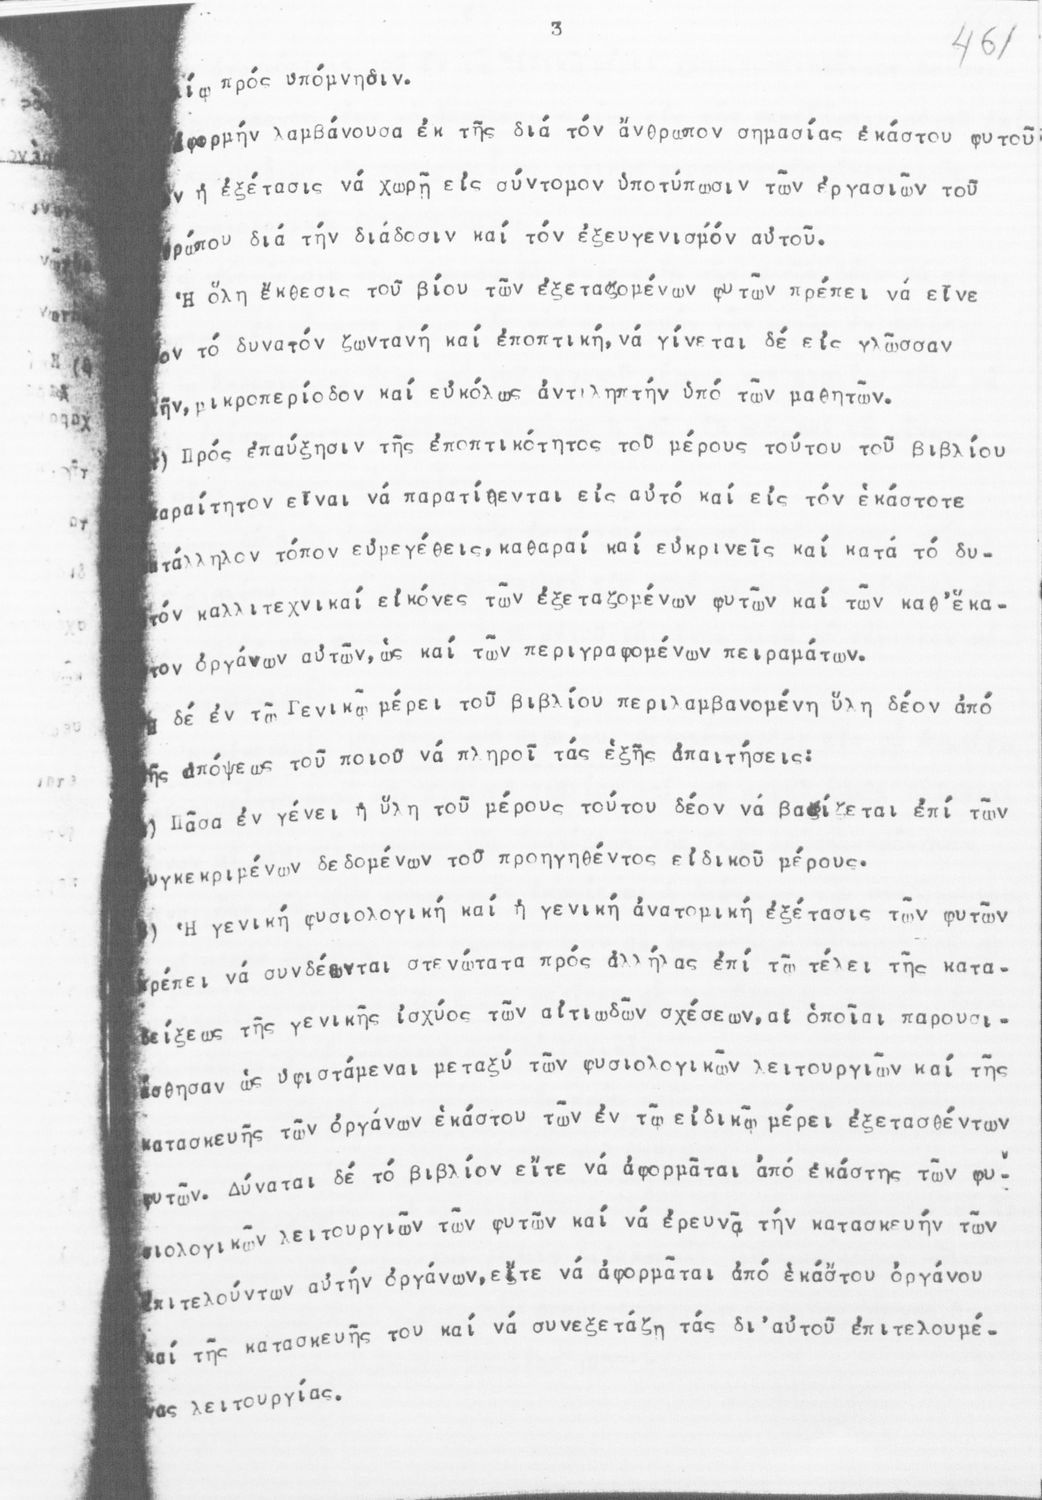 3
461
πρός ὑπόμνησιν.
ἀφορμήν λαμβάνουσα ἐκ τῆς διά τόν ἄνθρωπον σημασίας ἑκάστου φυτοῦ
ἡ ἐξέτασις νά χωρῇ εἰς σύντομον ὑποτύπωσιν τῶν ἐργασιῶν τοῦ
θρώπου διά τήν διάδοσιν καί τόν ἐξευγενισμόν αὐτοῦ.
Ἡ ὅλη ἔκθεσις τοῦ βίου τῶν ἐξεταζομένων φυτῶν πρέπει νά εἶνε
ον τό δυνατόν ζωντανή καί ἐποπτική, νά γίνεται δέ εἰς γλῶσσαν
ῆν, μικροπερίοδον καί εὐκόλως ἀντιληπτήν ὑπό τῶν μαθητῶν.
) Πρός ἐπαύξησιν τῆς ἐποπτικότητος τοῦ μέρους τούτου τοῦ βιβλίου
παραίτητον εἶναι νά παρατίθενται εἰς αὐτό καί εἰς τόν ἑκάστοτε
ατάλληλον τόπον εὐμεγέθεις, καθαραί καί εὐκρινεῖς καί κατά τό δυ-
τόν καλλιτεχνικαί εἰκόνες τῶν ἐξεταζομένων φυτῶν καί τῶν καθ' ἕκα-
τον ὀργάνων αὐτῶν, ὡς καί τῶν περιγραφομένων πειραμάτων.
Ἡ δέ ἐν τῷ Γενικῷ μέρει τοῦ βιβλίου περιλαμβανομένη ὕλη δέον ἀπό
τῆς ἀπόψεως τοῦ ποιοῦ νά πληροῖ τάς ἑξῆς ἀπαιτήσεις:
) Πᾶσα ἐν γένει ἡ ὕλη τοῦ μέρους τούτου δέον νά βασίζεται ἐπί τῶν
συγκεκριμένων δεδομένων τοῦ προηγηθέντος εἰδικοῦ μέρους.
β) Ἡ γενική φυσιολογική καί ἡ γενική ἀνατομική ἐξέτασις τῶν φυτῶν
πρέπει νά συνδέωνται στενώτατα πρός ἀλλήλας ἐπί τῷ τέλει τῆς κατα-
δείξεως τῆς γενικῆς ἰσχύος τῶν αἰτιωδῶν σχέσεων, αἱ ὁποῖαι παρουσι-
άσθησαν ὡς ὑφιστάμεναι μεταξύ τῶν φυσιολογικῶν λειτουργιῶν καί τῆς
κατασκευῆς τῶν ὀργάνων ἑκάστου τῶν ἐν τῷ εἰδικῷ μέρει ἐξετασθέντων
φυτῶν. Δύναται δέ τό βιβλίον εἴτε νά ἀφορμᾶται ἀπό ἑκάστης τῶν φυ-
σιολογικῶν λειτουργιῶν τῶν φυτῶν καί νά ἐρευνᾷ τήν κατασκευήν τῶν
ἐπιτελούντων αὐτήν ὀργάνων, εἴτε νά ἀφορμᾶται ἀπό ἑκάστου ὀργάνου
καί τῆς κατασκευῆς του καί νά συνεξετάζῃ τάς δι' αὐτοῦ ἐπιτελουμέ-
νας λειτουργίας.